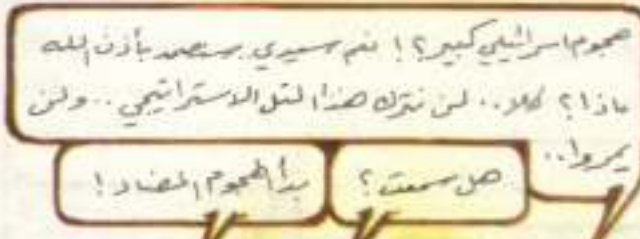 هجوم اسرائيلي كبير؟! نعم سيدي سنصمد بأذن الله
ماذا؟ كلا.. لن نترك هذا التل الاستراتيجي.. ولن
يمروا..
هل سمعت؟
بدأ الهجوم المضاد!